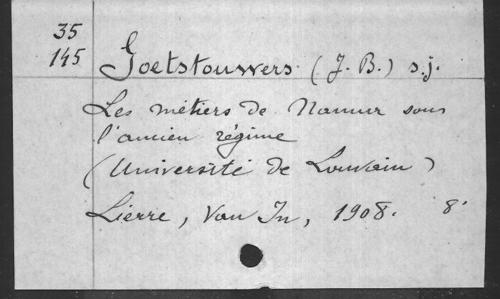 35
145
Goetstouwers (J. B.) s.j.
Les métiers de Namur sous
l'ancien régime
(Université de Louvain)
Lierre, Van In, 1908. 8°